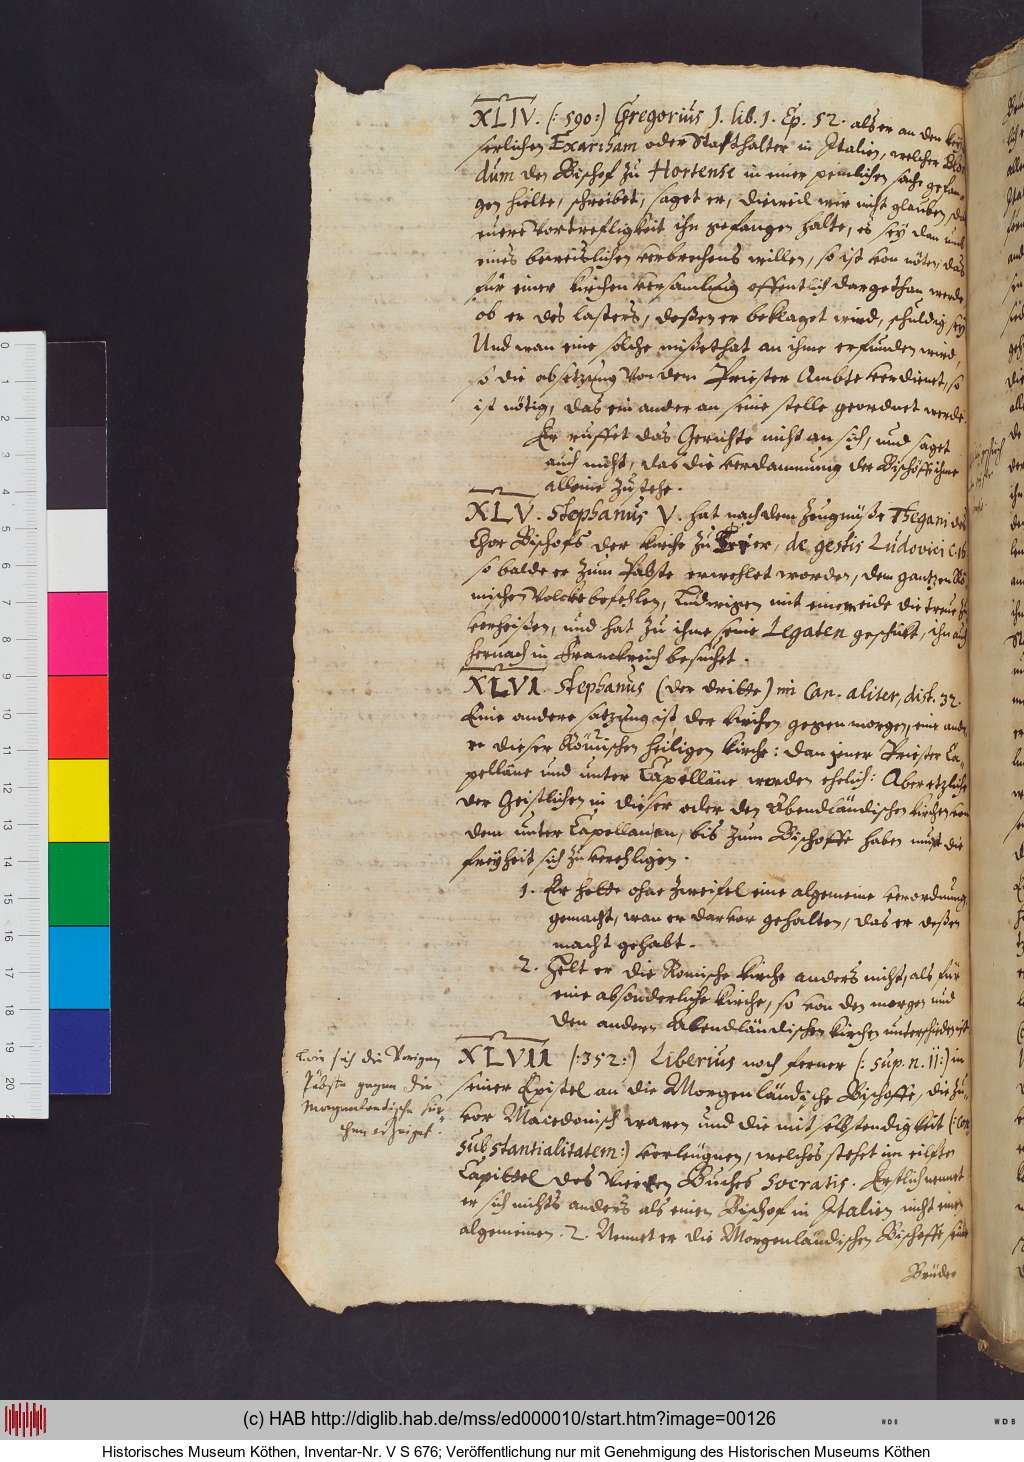 XLIV. (: 590:) Gregorius J. lib. 1. Ep. 52. als er an den Key-
serlichen Exarcham oder Statthalter in Italien, welcher Blan
dum den Bischof zu Hortense in einer peinlichen sache gefan-
gen hielte, schreibet, saget er, dieweil wir nicht glauben, das
euere Vortrefligkeit ihn gefangen halte, es sey dan umb
eines beweislichen verbrechens willen, so ist von nöten, das
für einer Kirchen versamlung offentlich dargethan werde
ob er des lasters, deßen er beklaget wird, schuldig sey
Und wan eine solche mißethat an ihme erfunden wird,
so die absetzung von dem Priester Ambte verdienet, so
ist nötig, das ein ander an seine stelle geordnet werde.
Er ruffet das Gerichte nicht an sich, und saget
auch nicht, das die verdammung der Bischöffe ihme
alleine zustehe.
XLV. Stephanus V. hat nach dem Zeugnüße Thegani des
Chor Bischofs der Kirche zu Trier, de gestis Ludovici c. 16
so balde er zum Pabste erwehlet worden, dem gantzen Rö
mischen Volcke befehlen, Ludwigen mit einem eide die treue zu
verheißen, und hat zu ihme seine Legaten geschikt, ihn auch
hernach in Franckreich besuchet.
XLVI. Stephanus (der dritte) in Can. aliter, dist. 32.
Eine andere satzung ist der Kirchen gegen morgen, eine ande
re dieser Römischen heiligen Kirche: dan jener Priester Ca-
pelläne und unter Capelläne werden ehelich: Aber etzliche
der Geistlichen in dieser oder den Abendländischen Kirchen von
dem unter Capellanen, bis zum Bischoffe haben nicht die
freyheit sich zu verehligen.
1. Er hette ohne Zweifel eine algemeine verordnung
gemacht, wan er darvor gehalten, das er deßen
macht gehabt.
2. Helt er die Romische Kirche anders nicht, als für
eine absonderliche Kirche, so von den morgen und
den andern Abendländischen Kirchen unterschieden ist
XLVII (: 352:) Liberius noch ferner (: sup. n. 11:) in
seiner Epistel an die Morgenländische Bischoffe, die zu-
vor Macedonisch waren und die mit selbstendigkeit (: con
substantialitatem:) verleugnen, welches stehet im eilften
Capittel des Vierten Buches Socratis. Erstlich nennet
er sich nichts anders als einen Bischof in Italien nicht einen
algemeinen. 2. Nennet er die Morgenländischen Bischoffe seine
Brüder
wie sich die Vorigen
Päbste gegen die
Morgenlendische Kir-
chen erzeiget.
(c) HAB http://diglib.hab.de/mss/ed000010/start.htm?image=00126
W D B
Historisches Museum Köthen, Inventar-Nr. V S 676; Veröffentlichung nur mit Genehmigung des Historischen Museums Köthen